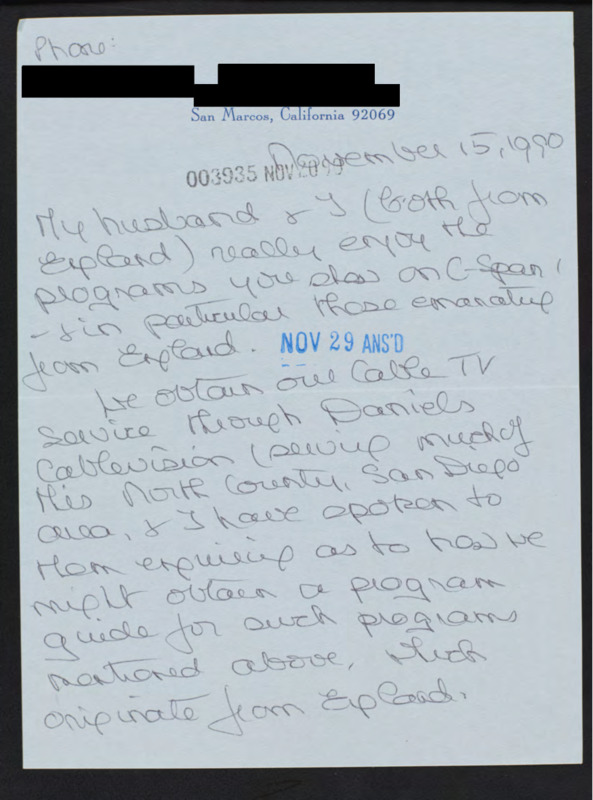 Phone:
San Marcos, California 92069
November 15, 1990
003935 NOV 20
My husband & I (both from
England) really enjoy the
programs you show on C-Span,
- & in particular those emanating
from England.
NOV 29 ANS'D
We obtain our Cable TV
Service through Daniels
Cablevision (serving much of
this North County, San Diego
area, & I have spoken to
them enquiring as to how we
might obtain a program
guide for such programs
mentioned above, which
originate from England.